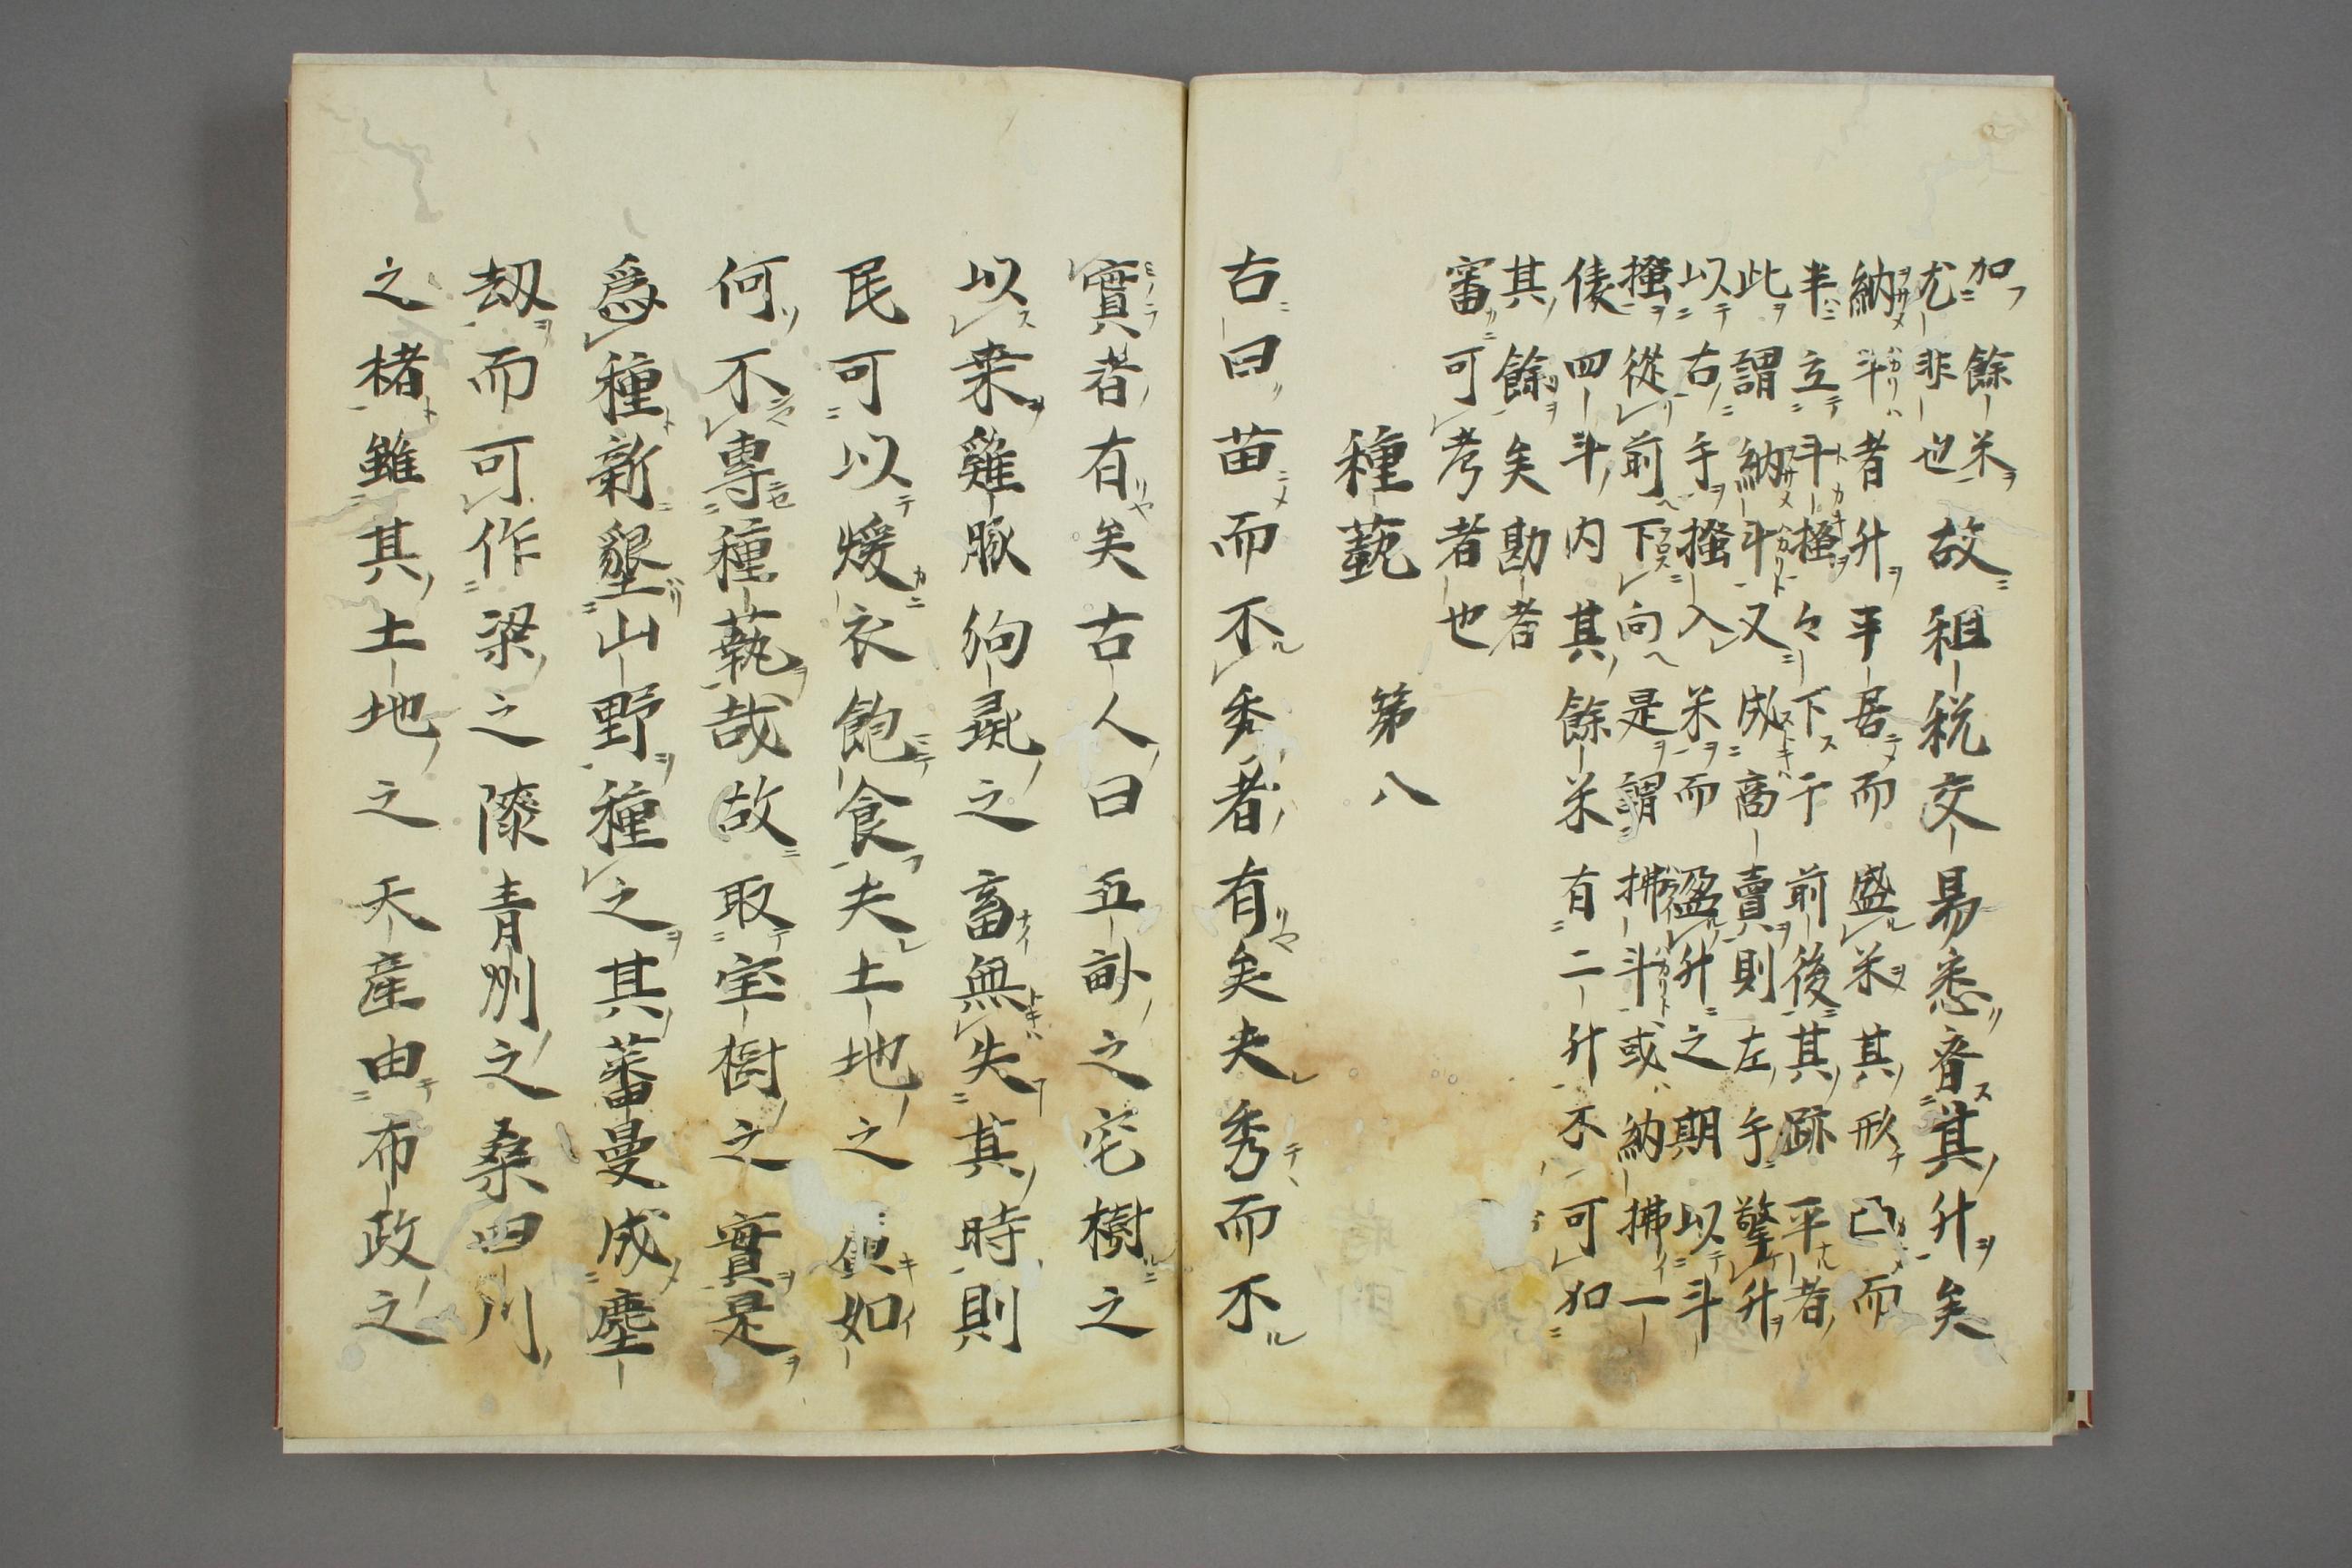 加餘米
尤非也故租税交易悉音其升矣
納斗者升平居而盛米其形已而
半立斗掻々下于前後其跡平者
此謂納斗又成商賣則左手擎升
以右手掻入米而盈升之期以斗
掻從前下向是謂拂斗或納拂一
俵四斗内其餘米有二升不可加
其餘矣勘者
審可考者也
種藝 第八
右曰苗而不秀者有矣夫秀而不
實者有矣古人曰五畝之宅樹之
以桒雞豚狗彘之畜無失其時則
民可以煖衣飽食夫土地之 如
何不專種藝哉故取宝樹之實是
爲種新墾山野種之其蕃曼成塵
刼而可作梁之漆青刕之桑四川
之楮雖其土地之天産由布政之